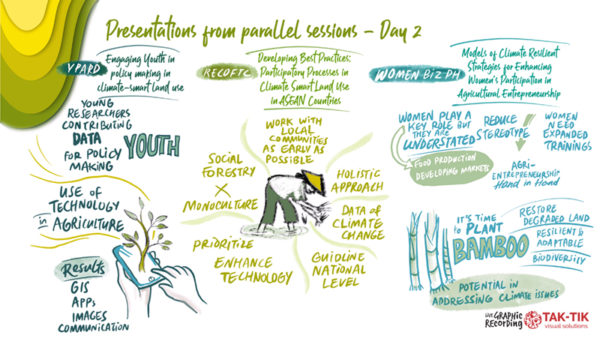 Presentations from parallel sessions – Day 2
YPARD
Engaging Youth in
policy making in
climate-smart land use
YOUNG
RESEARCHERS
CONTRIBUTING
DATA
FOR POLICY
MAKING
YOUTH
USE OF
TECHNOLOGY
in AGRICULTURE
Results
GIS
APPs
IMAGES
COMMUNICATION
RECOFTC
Developing Best Practices:
Participatory Processes in
Climate Smart Land Use
in ASEAN Countries
WORK WITH
LOCAL
COMMUNITIES
AS EARLY AS
POSSIBLE
SOCIAL
FORESTRY
X
MONOCULTURE
HOLISTIC
APPROACH
DATA of
CLIMATE
CHANGE
PRIORITIZE
ENHANCE
TECHNOLOGY
GUIDLINE
NATIONAL
LEVEL
WOMEN BIZ PH
Models of Climate Resilient
Strategies for Enhancing
Women's Participation in
Agricultural Entrepreneurship
WOMEN PLAY A
KEY ROLE BUT
THEY ARE
UNDERSTATED
REDUCE
STEREOTYPE
WOMEN
NEED
EXPANDED
TRAININGS
FOOD PRODUCTION
DEVELOPING MARKETS
AGRI-
ENTREPRENEURSHIP
Hand in Hand
IT'S TIME
to PLANT
BAMBOO
RESTORE
DEGRADED LAND
RESILIENT &
ADAPTABLE
BIODIVERSITY
POTENTIAL in
ADDRESSING CLIMATE ISSUES
LIVE GRAPHIC
RECORDING
TAK-TIK
visual solutions